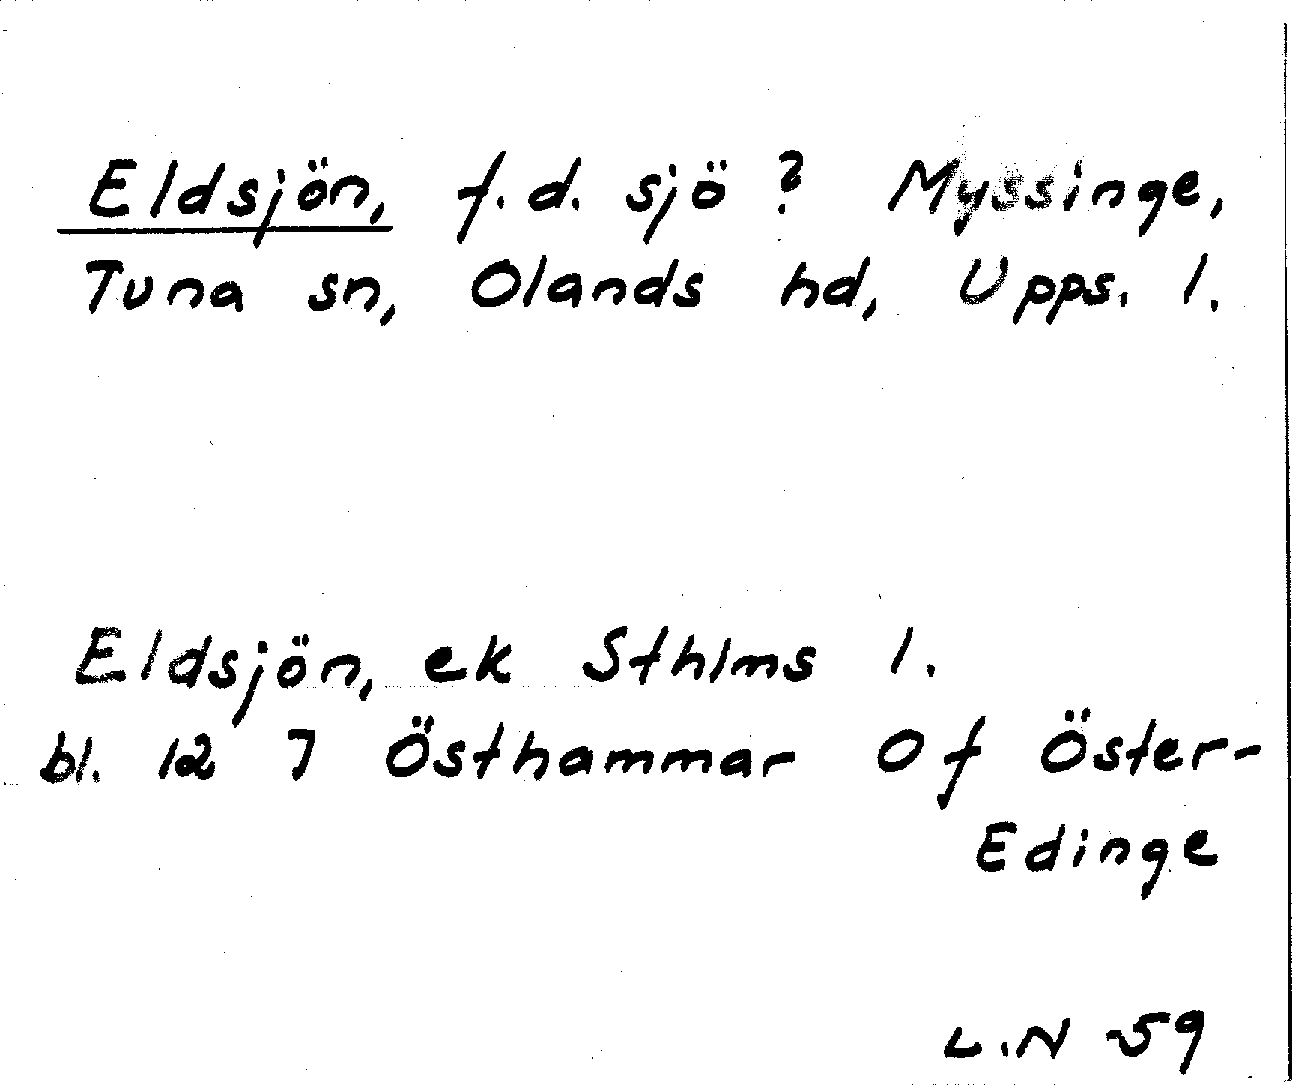 Eldsjön, f.d. sjö ? Myssinge,
Tuna sn, Olands hd, Upps. l.
Eldsjön, ek Sthlms l.
bl. 12 7 Östhammar Of Öster-
Edinge
L.N -59